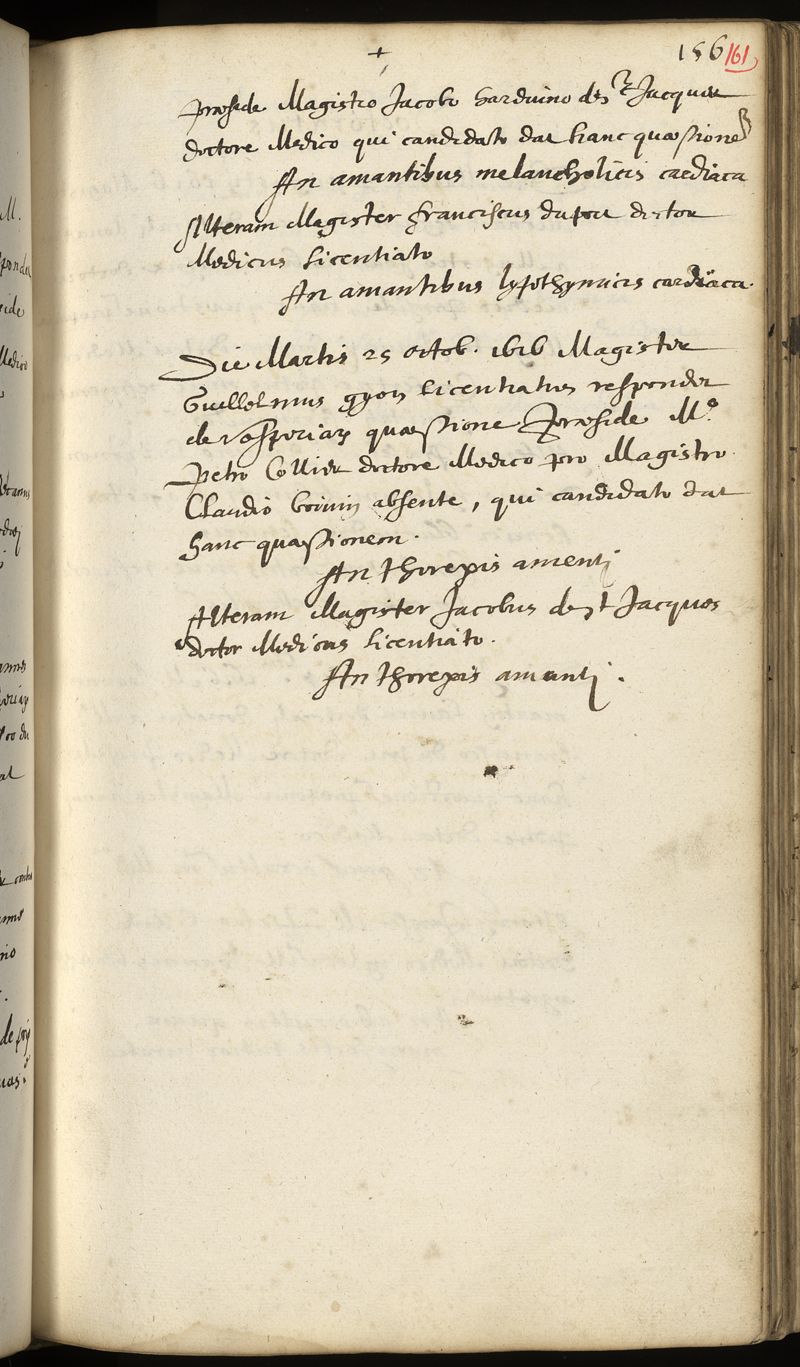 +
156 161
præside Magistro Jacobo harduino de St Jacques
doctore Medico qui candidato dat hanc quæstione
An amantibus melancholicis cardiaca
Alteram Magister franciscus du port doctor
Medicus Licentiato
An amantibus lypothymicis cardiaca.
Die Martis 25 octob. 1616 Magister
Guillelmus gyon licentiatus respondet
de vesperiarū quæstione Præside Mo
petro Collier doctore Medico pro Magistro
Claudio absente, qui candidato dat
hanc quæstionem.
An amenti
Alteram Magister Jacobus de St Jacques
doctor Medicus Licentiato.
An amanti.